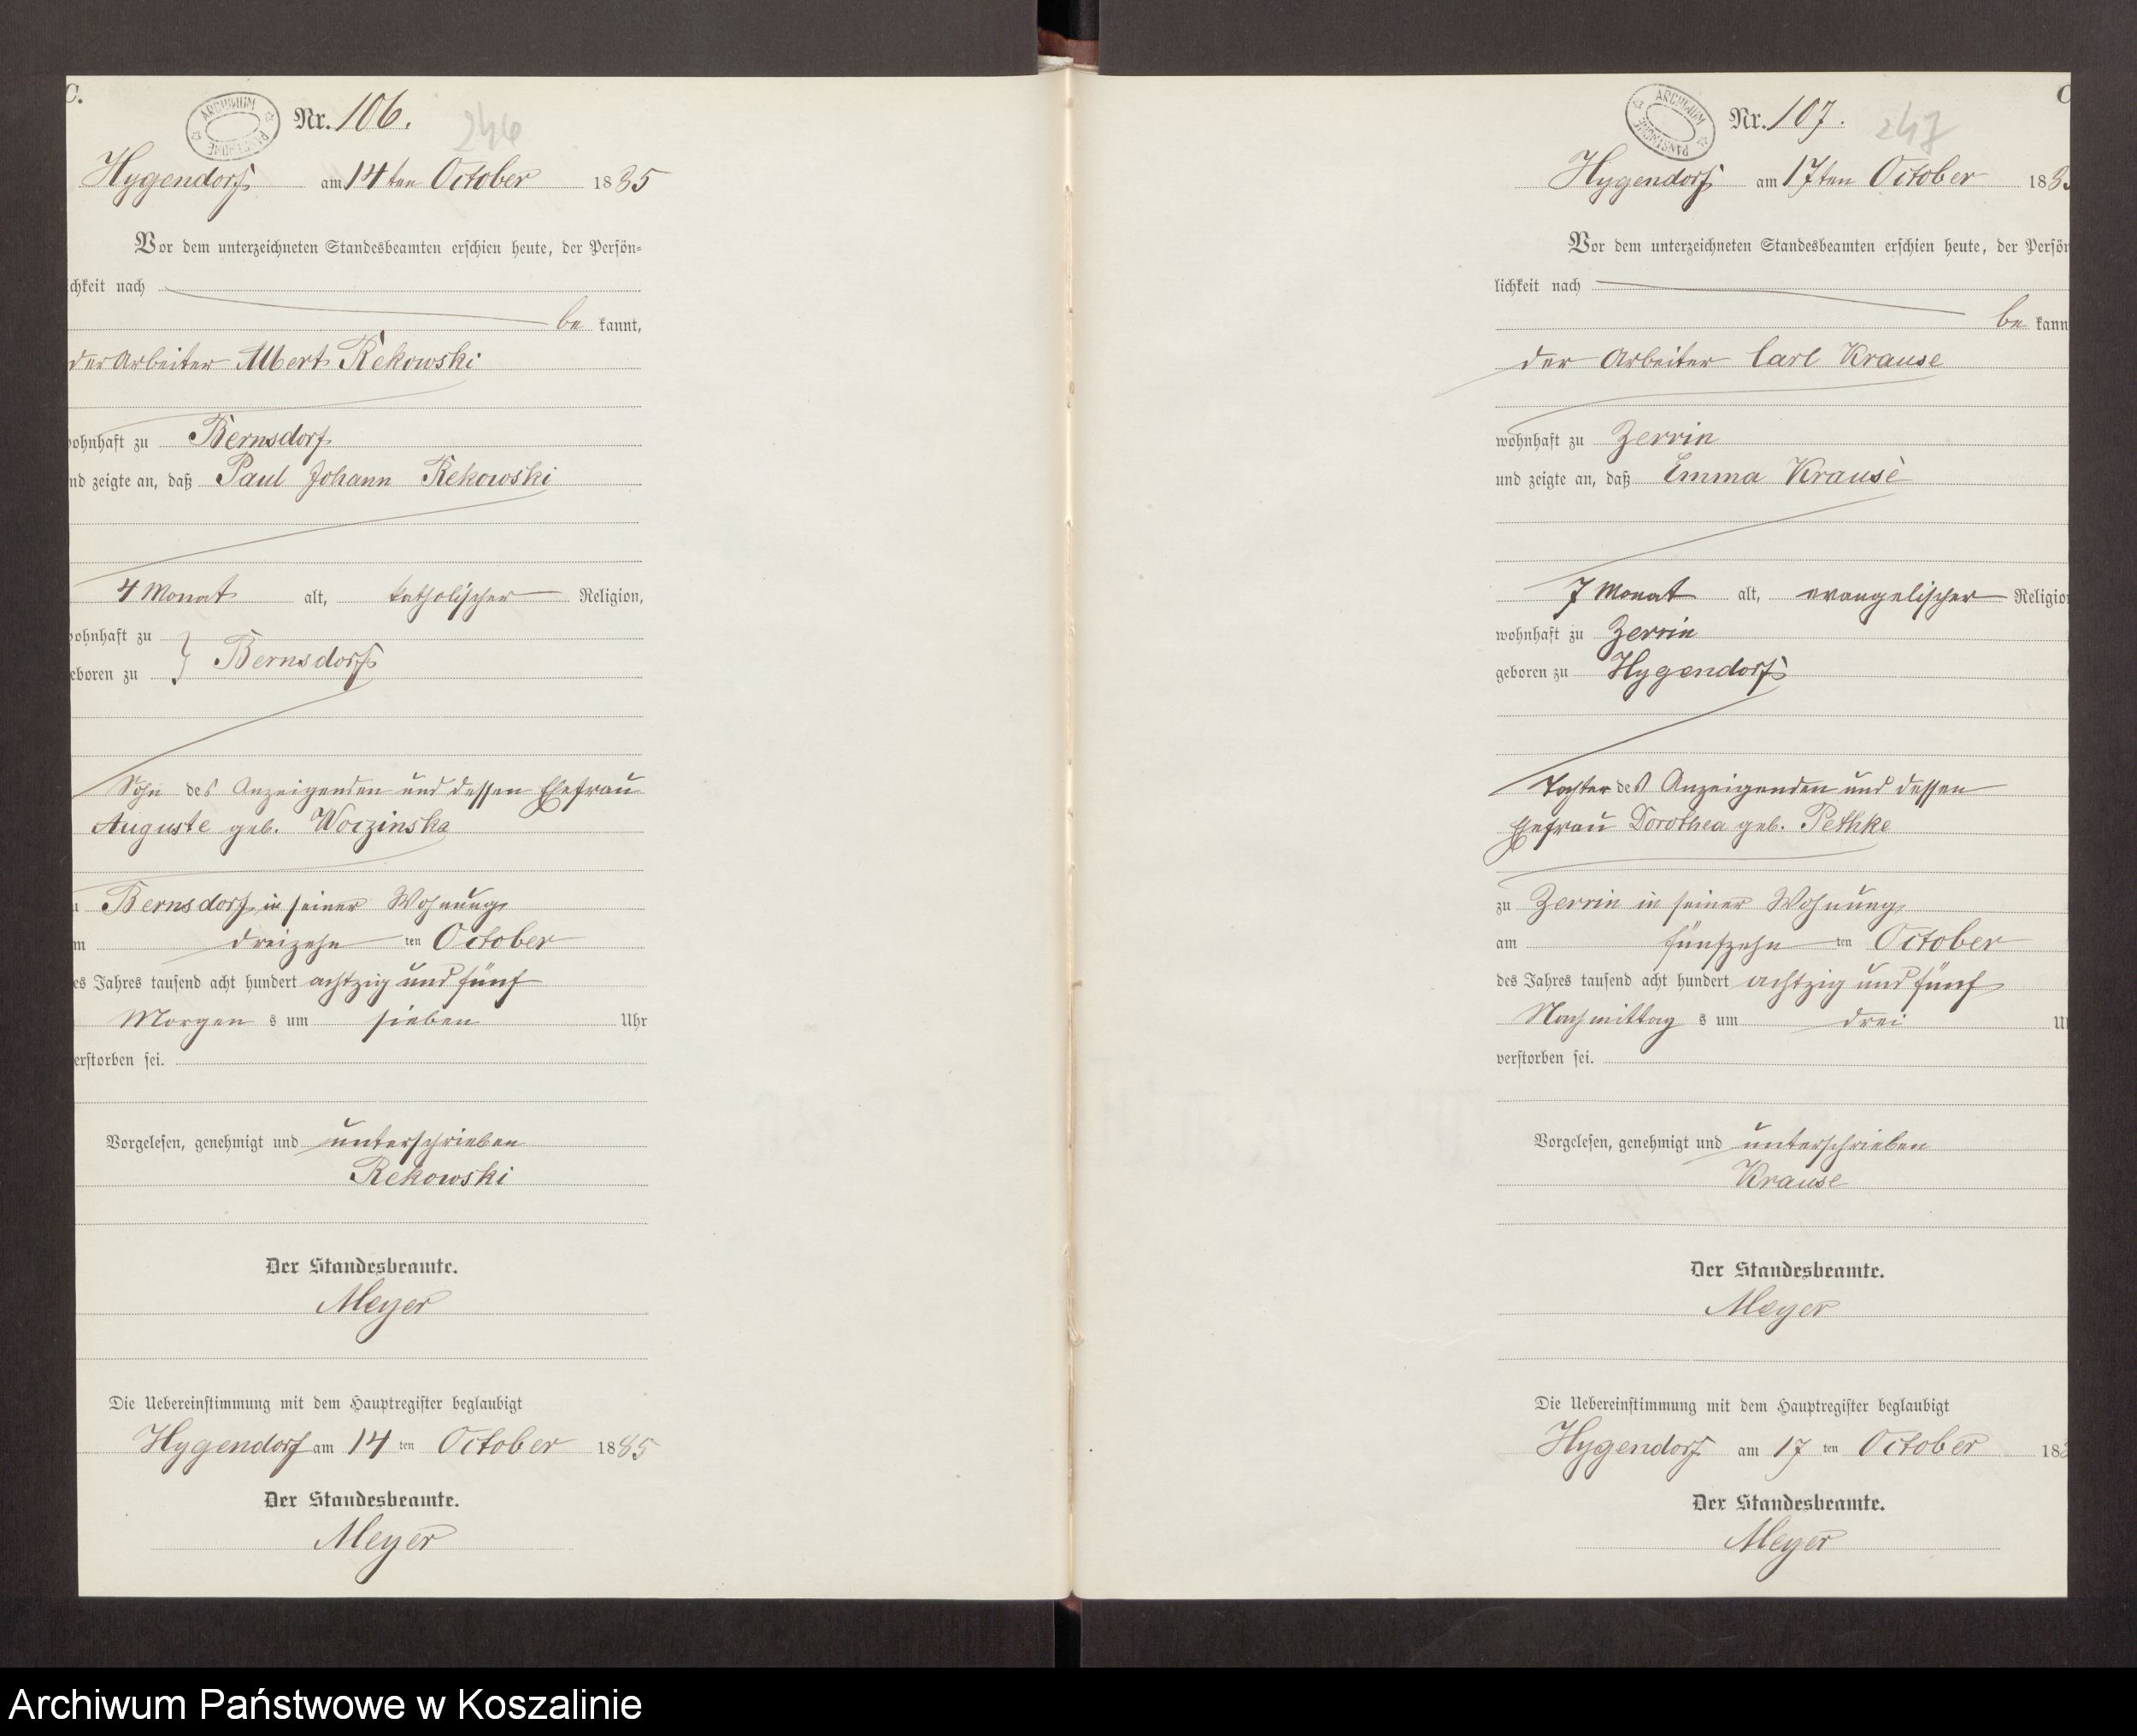 C.
ARCHIWUM PAŃSTWOWE
Nr. 106.
246
Hygendorf am 14ten October 1885
Vor dem unterzeichneten Standesbeamten erschien heute, der Persön-
ichkeit nach
be kannt,
der Arbeiter Albert Rekowski
wohnhaft zu Bernsdorf
nd zeigte an, daß Paul Johann Rekowski
4 Monat alt, katholischer Religion,
wohnhaft zu
eboren zu } Bernsdorf
Sohn des Anzeigenden und dessen Ehefrau
Auguste geb. Woczinska
u Bernsdorf in seiner Wohnung
m dreizehn ten October
es Jahres tausend acht hundert achtzig und fünf
Morgen s um sieben Uhr
erstorben sei.
Vorgelesen, genehmigt und unterschrieben
Rekowski
Der Standesbeamte.
Meyer
Die Uebereinstimmung mit dem Hauptregister beglaubigt
Hygendorf am 14 ten October 1885
Der Standesbeamte.
Meyer
C
ARCHIWUM PAŃSTWOWE
Nr. 107.
247
Hygendorf am 17ten October 188
Vor dem unterzeichneten Standesbeamten erschien heute, der Persön
lichkeit nach
be kann
der Arbeiter Carl Krause
wohnhaft zu Zerrin
und zeigte an, daß Emma Krause
7 Monat alt, evangelischer Religio
wohnhaft zu Zerrin
geboren zu Hygendorf
Tochter des Anzeigenden und dessen
Ehefrau Dorothea geb. Pethke
zu Zerrin in seiner Wohnung
am fünfzehn ten October
des Jahres tausend acht hundert achtzig und fünf
Nachmittag s um drei U
verstorben sei.
Vorgelesen, genehmigt und unterschrieben
Krause
Der Standesbeamte.
Meyer
Die Uebereinstimmung mit dem Hauptregister beglaubigt
Hygendorf am 17 ten October 188
Der Standesbeamte.
Meyer
Archiwum Państwowe w Koszalinie